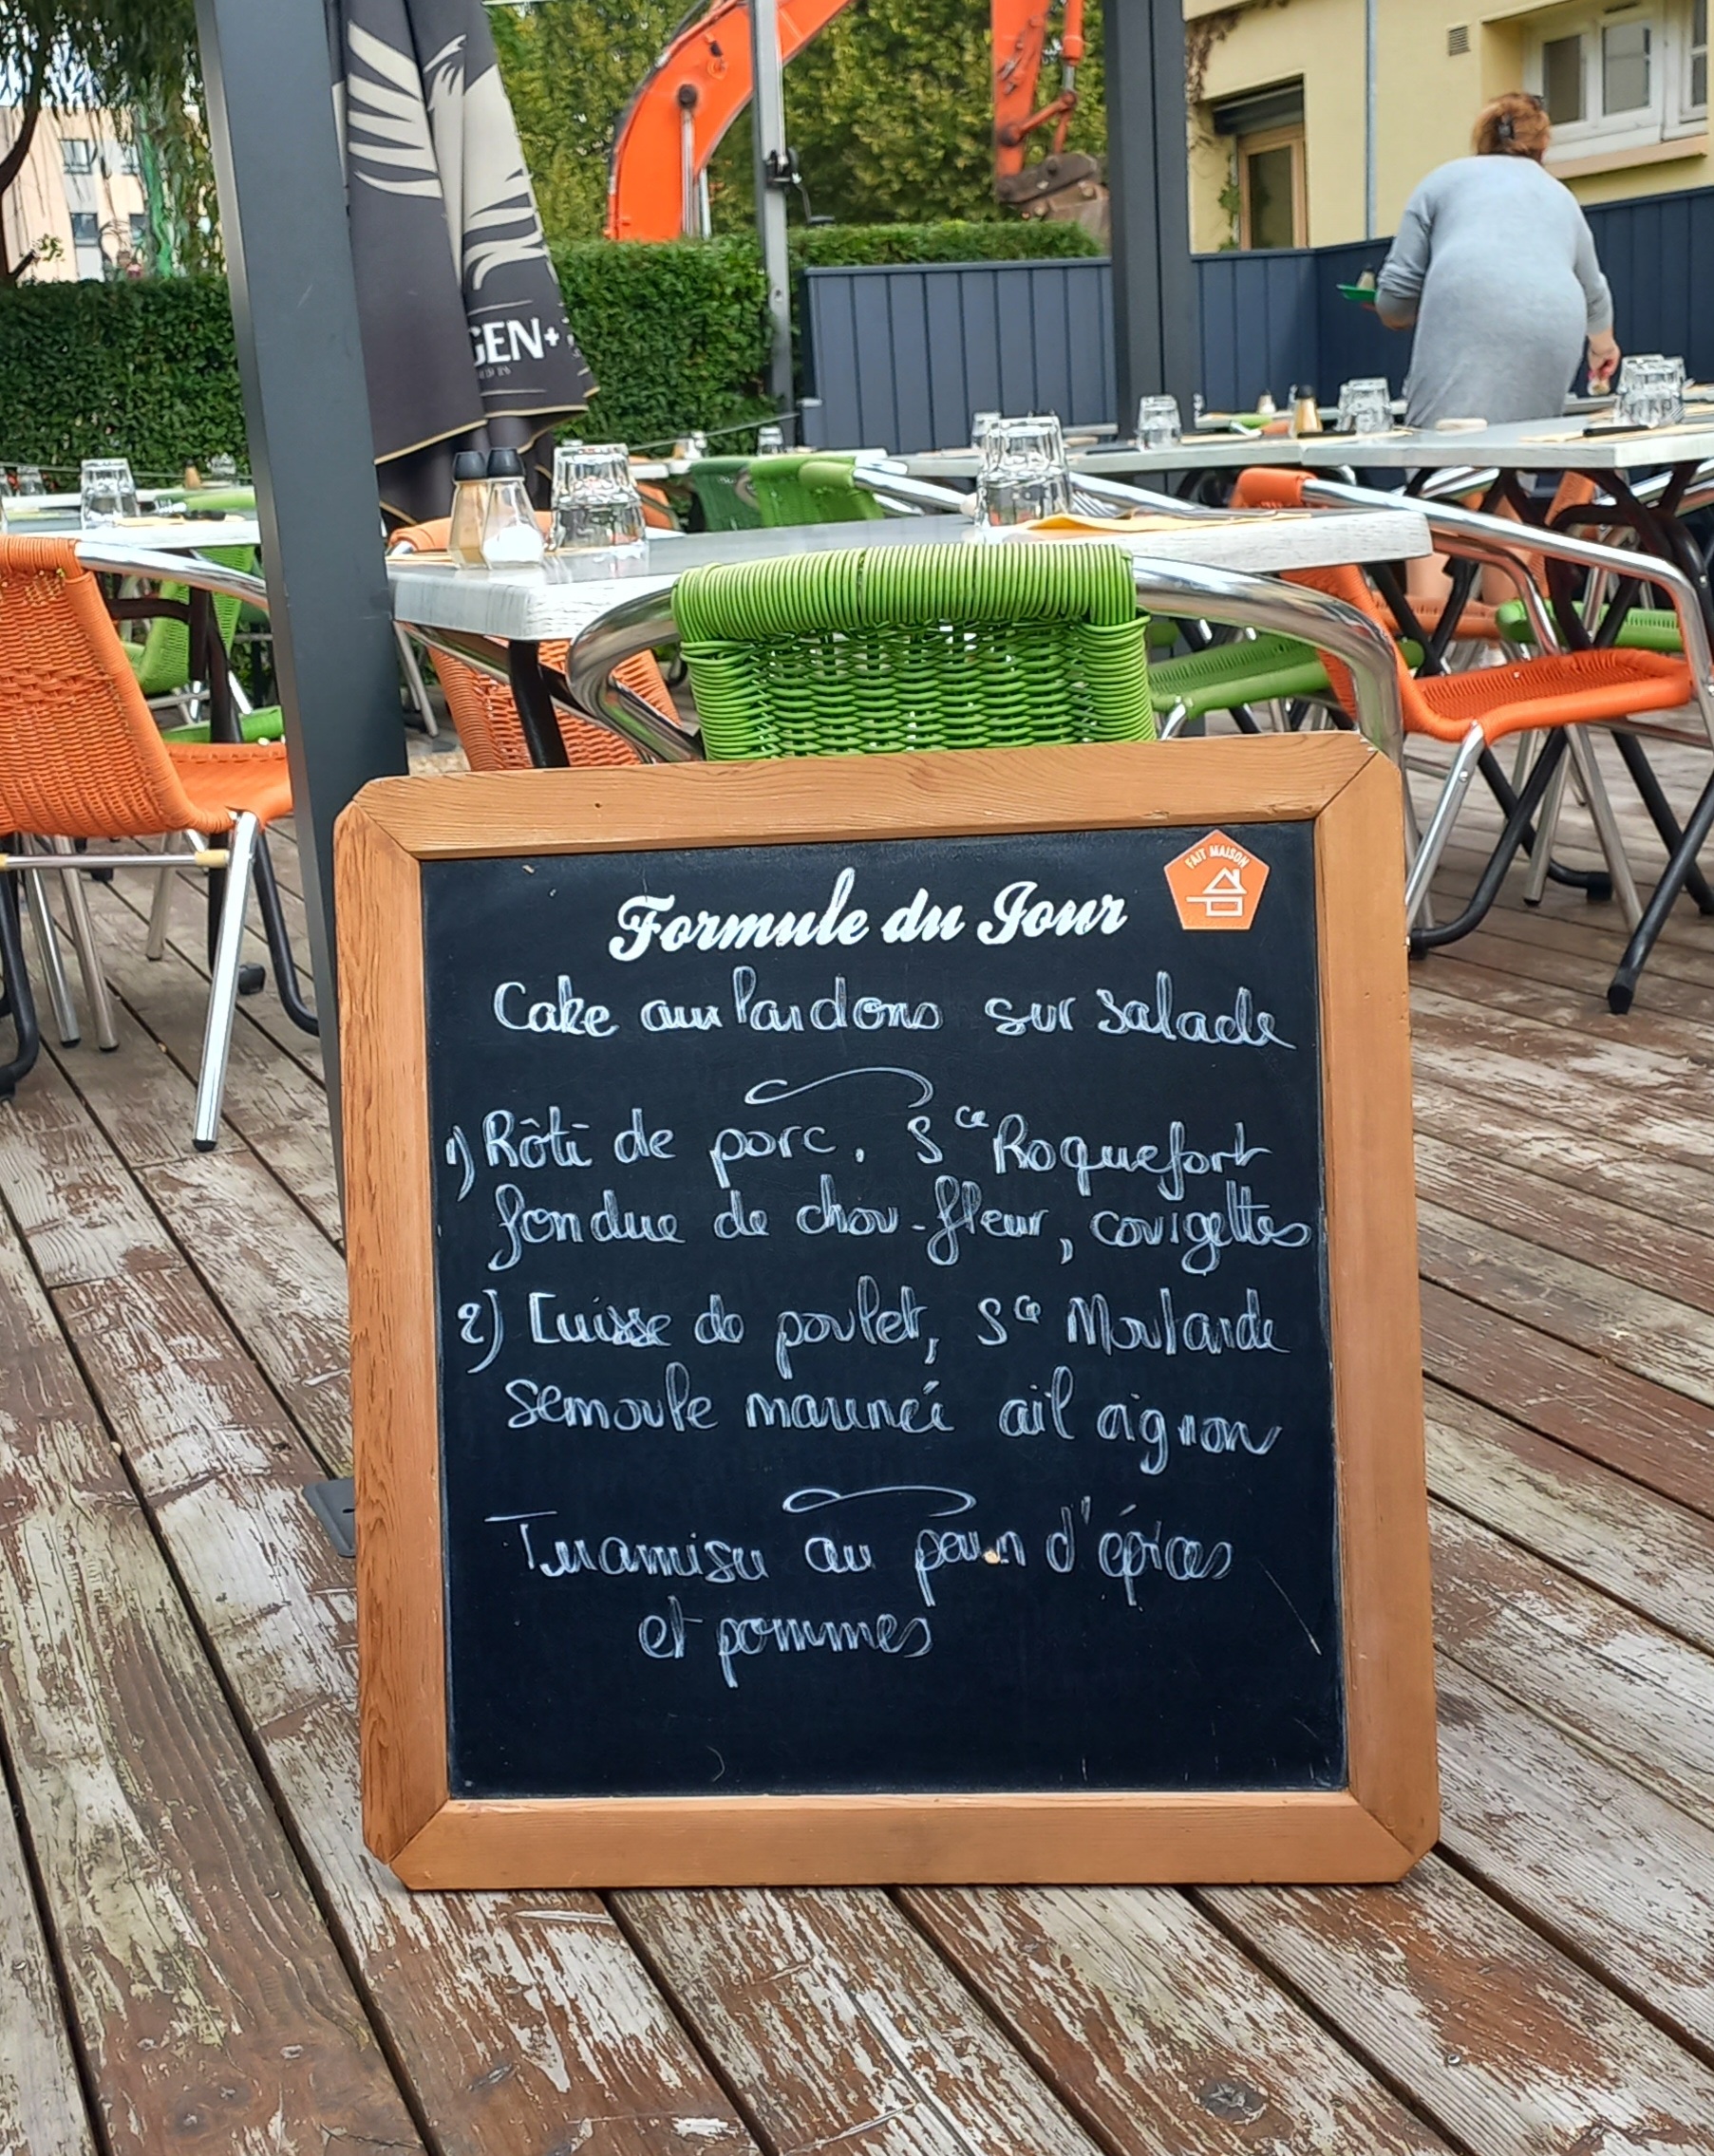 GEN+
FAIT MAISON
Formule du Jour
Cake aux lardons sur salade
1) Rôti de porc, Sce Roquefort
fondue de chou-fleur, courgettes
2) Cuisse de poulet, Sce Moutarde
semoule mariné ail oignon
Tiramisu au pain d'épices
et pommes